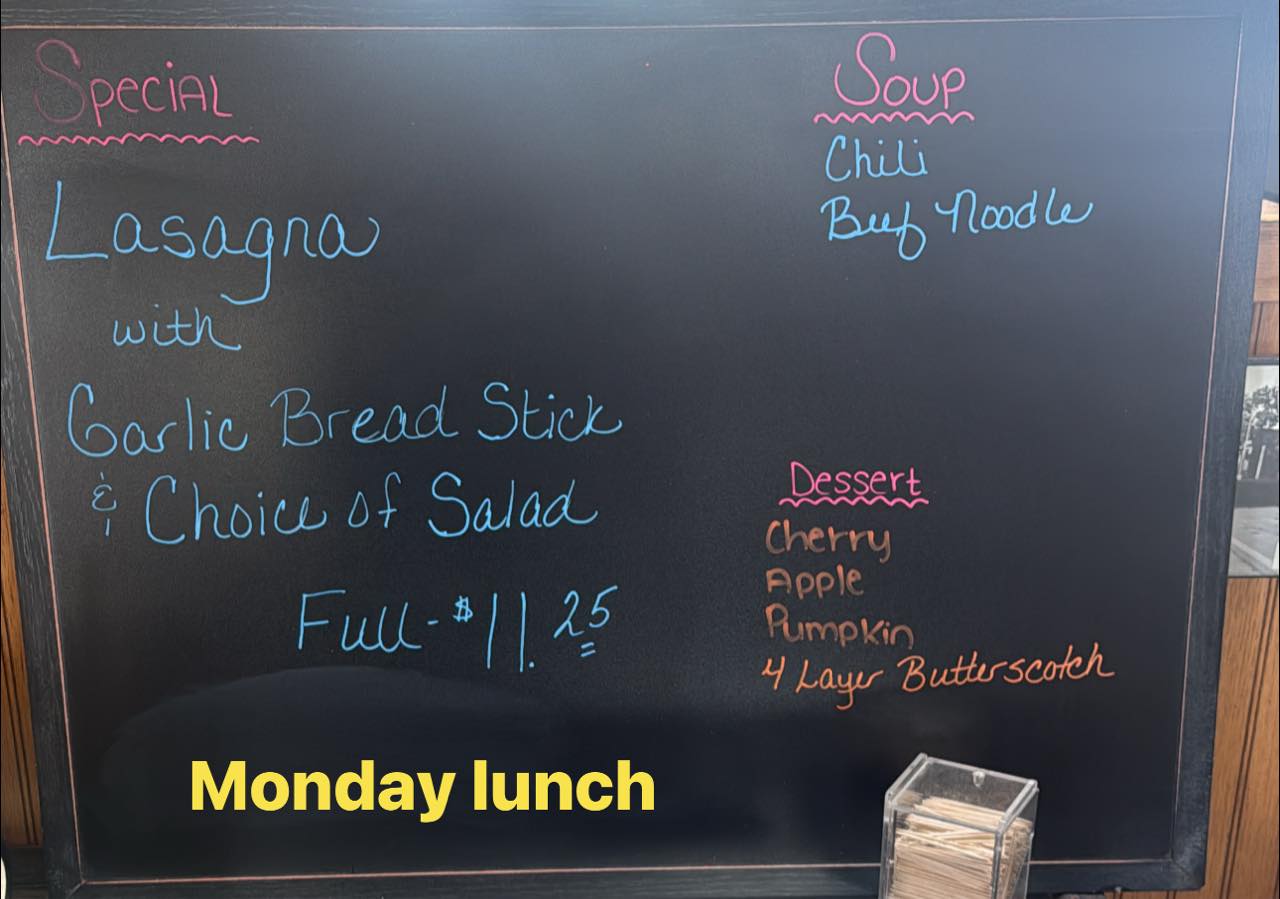 Special
Lasagna
with
Garlic Bread Stick
& Choice of Salad
Full - $11.25
Soup
Chili
Beef Noodle
Dessert
Cherry
Apple
Pumpkin
4 Layer Butterscotch
Monday lunch